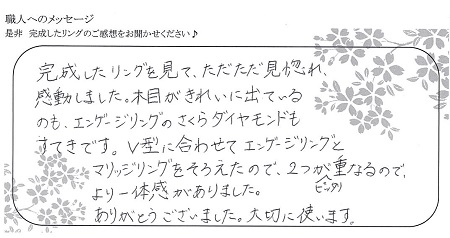 職人へのメッセージ
是非 完成したリングのご感想をお聞かせください♪
完成したリングを見て、ただただ見惚れ、
感動しました。木目がきれいに出ている
のも、エンゲージリングのさくらダイヤモンドも
すてきです。V型に合わせてエンゲージリングと
マリッジリングをそろえたので、2つが重なるので、
ピッタリ
より一体感がありました。
ありがとうございました。大切に使います。